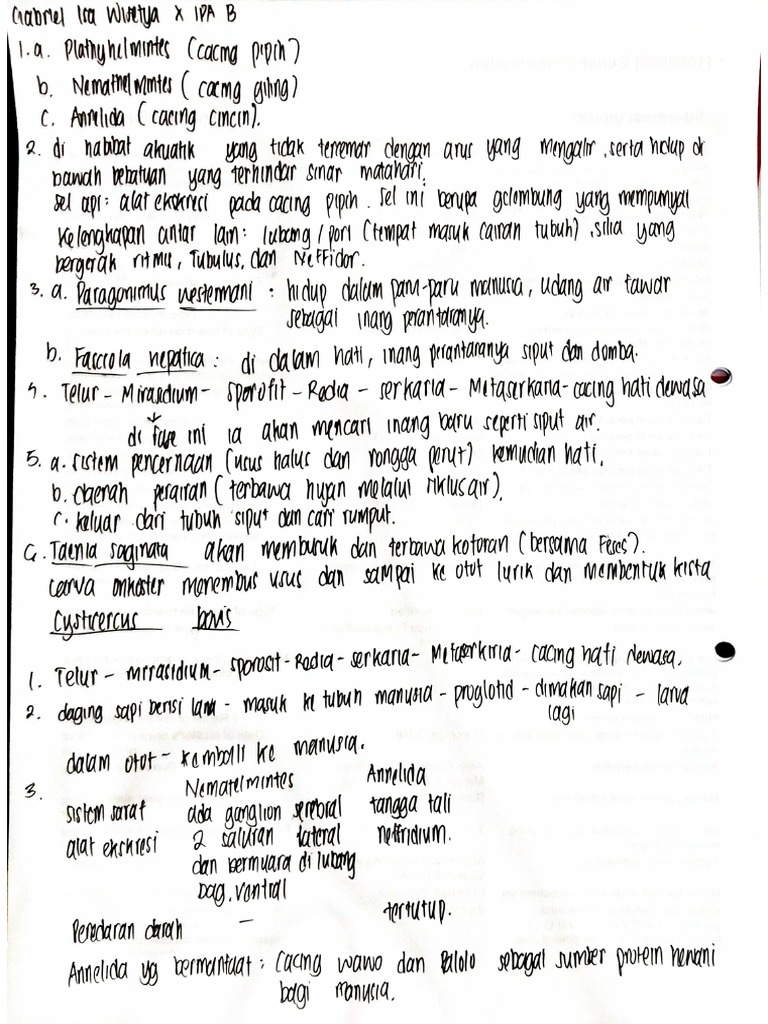 Gabriel Isa Wisetya X IPA B
1. a. Plathyhelmintes (cacing pipih)
b. Nemathelmintes (cacing giling)
c. Annelida (cacing cincin).
2. di habitat akuatik yang tidak tercemar dengan arus yang mengalir, serta hidup di
bawah bebatuan yang terhindar sinar matahari.
sel api: alat ekskresi pada cacing pipih. Sel ini berupa gelembung yang mempunyai
kelengkapan antar lain: lubang/pori (tempat masuk cairan tubuh), silia yang
bergerak ritmu, Tubulus, dan Neffidor.
3. a. Paragonimus westermani : hidup dalam paru-paru manusia, udang air tawar
sebagai inang perantaranya.
b. Fasciola hepatica : di dalam hati, inang perantaranya siput dan domba.
4. Telur - Mirasidium - sporofit - Redia - serkaria - Metaserkaria - cacing hati dewasa
di fase ini ia akan mencari inang baru seperti siput air.
5. a. sistem pencernaan (usus halus dan rongga perut) kemudian hati.
b. daerah perairan (terbawa hujan melalui siklus air).
c. keluar dari tubuh siput dan cari rumput.
6. Taenia saginata akan memburuk dan terbawa kotoran (bersama Feses).
Larva onkoster menembus usus dan sampai ke otot lurik dan membentuk kista
Cysticercus bovis
1. Telur - mirasidium - sporosit - Redia - serkaria - Metaserkiria - cacing hati dewasa.
2. daging sapi berisi larva - masuk ke tubuh manusia - proglotid - dimakan sapi - larva
lagi
dalam otot - kembali ke manusia.
3. Nematelmintes Annelida
sistem saraf ada ganglion serebral tangga tali
alat ekskresi 2 saluran lateral nefiridium.
dan bermuara di lubang
bag. ventral
Peredaran darah - tertutup.
Annelida yg bermanfaat : Cacing wawo dan Palolo sebagai sumber protein hewani
bagi manusia.